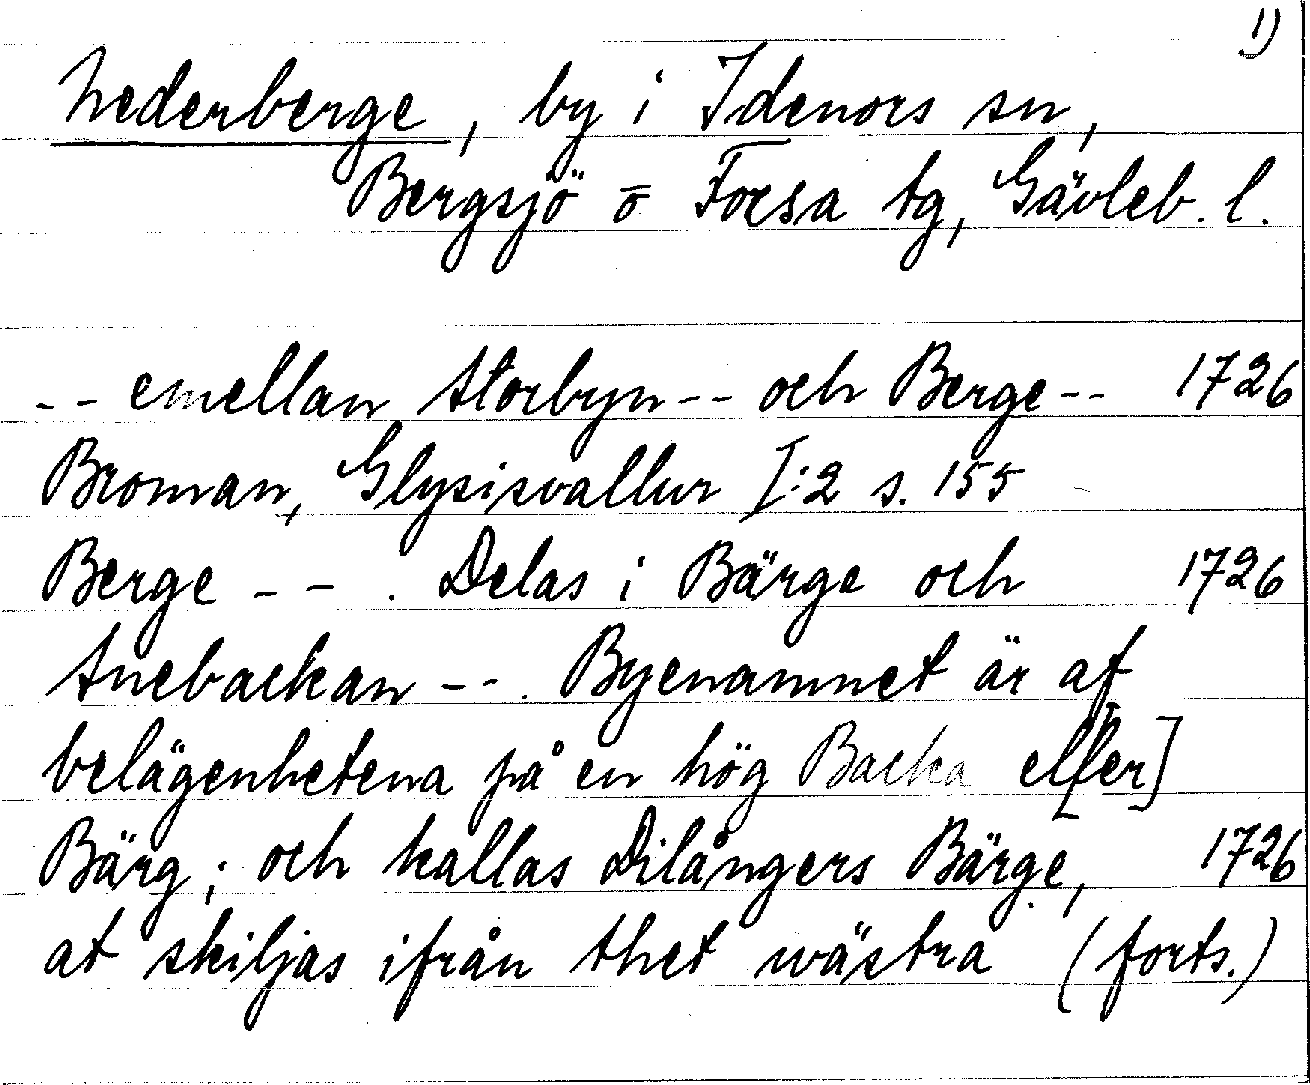 1)
Nederberge, by i Idenors sn,
Bergsjö o Forsa tg, Gävleb. l.
-- emellan Storbyn -- och Berge -- 1726
Broman, Glysisvallur I:2 s. 155
Berge -- . Delas i Bärge och 1726
Snebackan -- . Byenamnet är af
belägenhetena på en hög Backa el[ler]
Bärg; och kallas Dilångers Bärge, 1726
at skiljas ifrån thet wästra (forts.)